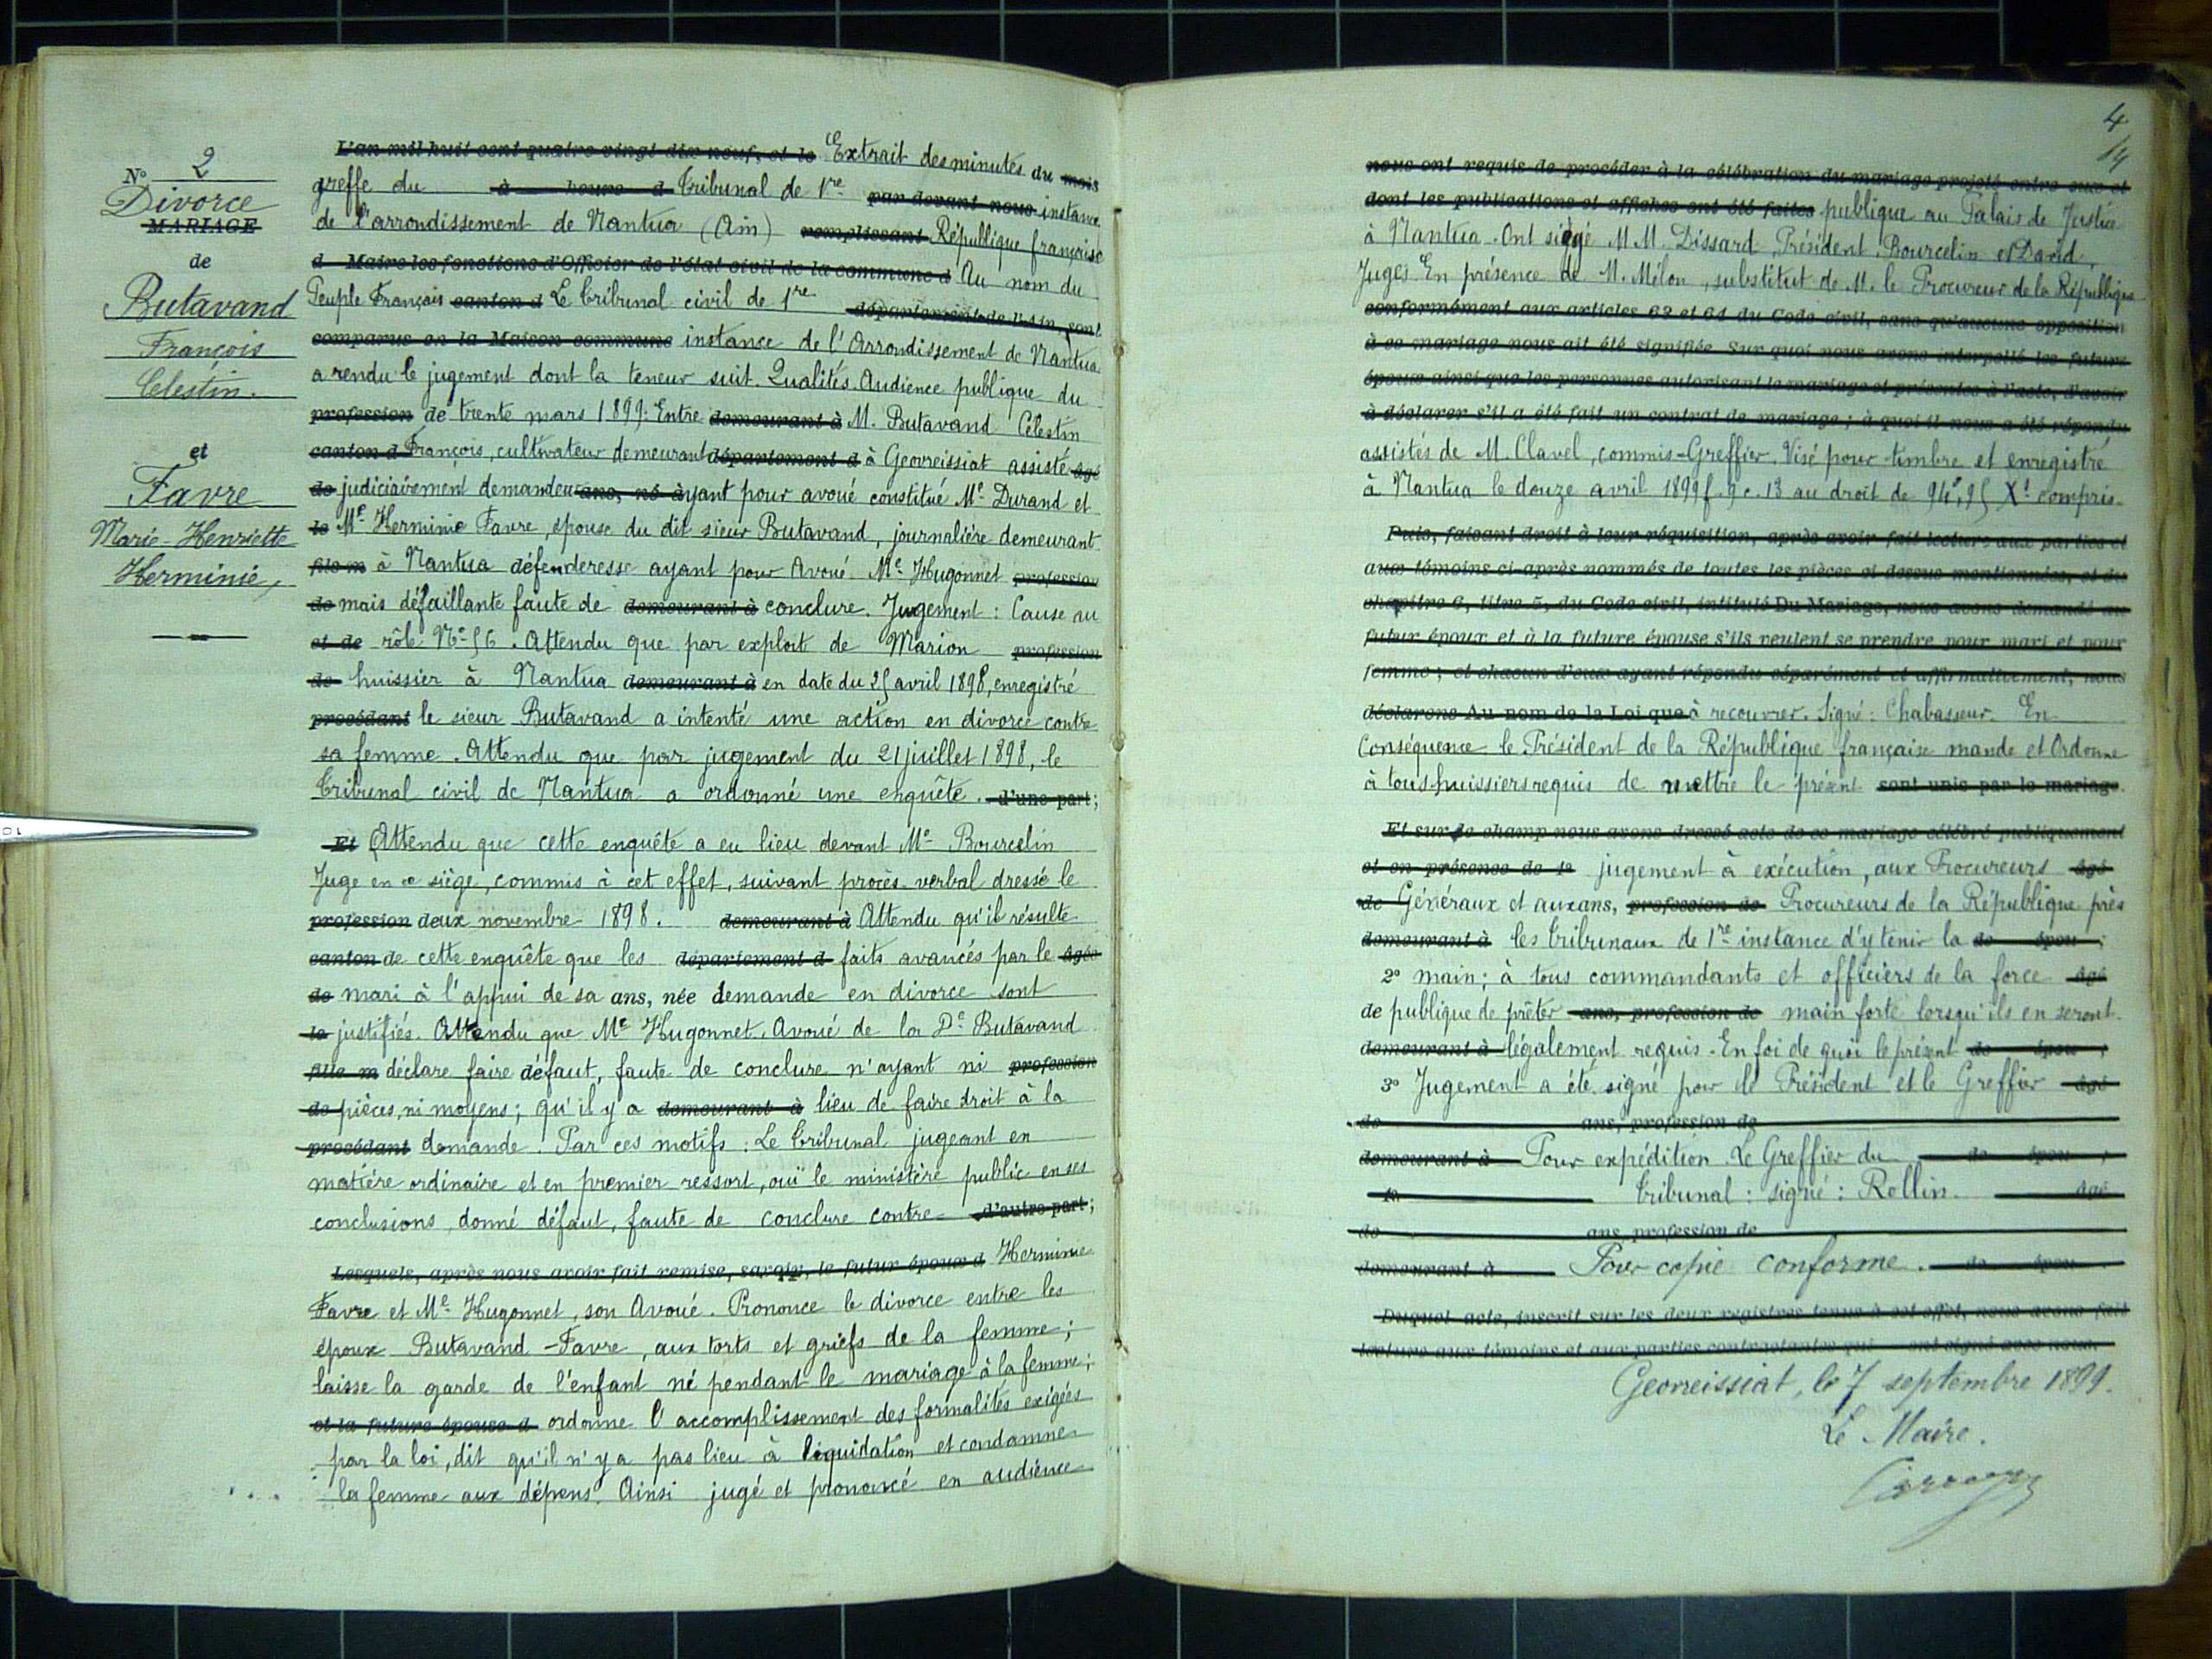 N° 2
Divorce
MARIAGE
de
Butavand
François
Celestin.
et
Favre
Marie-Henriette
Herminie,
L'an mil huit cent quatre vingt dix neuf, et le Extrait des minutes du mois
greffe du à heure d Tribunal de 1re par devant nous instance
de l'arrondissement de Nantua (Ain) remplissant République française
d Maire les fonctions d'Officier de l'état civil de la commune d Au nom du
Peuple Français canton d Le Tribunal civil de 1re département de l'Ain, sont
comparus en la Maison commune instance de l'Arrondissement de Nantua
a rendu le jugement dont la teneur suit. Qualités. Audience publique du
profession de trente mars 1899: Entre demeurant à M. Butavand Célestin
canton d François, cultivateur demeurant département d à Geovreissiat assisté âgé
de judiciairement demandeur ans, né ayant pour avoué constitué Me Durand et
le Me Herminie Favre, épouse du dit sieur Butavand, journalière demeurant
fils m à Nantua défenderesse ayant pour Avoué Me Hugonnet profession
de mais défaillante faute de demeurant à conclure. Jugement : Cause au
et de rôle N° 56. Attendu que par exploit de Marion profession
de huissier à Nantua demeurant à en date du 25 avril 1898, enregistré
procédant le sieur Butavand a intenté une action en divorce contre
sa femme. Attendu que par jugement du 21 juillet 1898, le
Tribunal civil de Nantua a ordonné une enquête. d'une part;
Et Attendu que cette enquête a eu lieu devant Me Bourcelin
Juge en ce siège, commis à cet effet, suivant procès-verbal dressé le
profession deux novembre 1898. demeurant à Attendu qu'il résulte
canton de cette enquête que les département d faits avancés par le âgée
de mari à l'appui de sa ans, née demande en divorce sont
le justifiés. Attendu que Me Hugonnet, Avoué de la De Butavand
fille m déclare faire défaut, faute de conclure n'ayant ni profession
de pièces, ni moyens; qu'il y a demeurant à lieu de faire droit à la
procédant demande. Par ces motifs : Le Tribunal jugeant en
matière ordinaire et en premier ressort, ouï le ministère public en ses
conclusions, donné défaut, faute de conclure contre d'autre part;
Lesquels, après nous avoir fait remise, savoir, le futur époux d Herminie
Favre et Me Hugonnet, son Avoué. Prononce le divorce entre les
époux Butavand-Favre, aux torts et griefs de la femme;
laisse la garde de l'enfant né pendant le mariage à la femme;
et la future épouse d ordonne l'accomplissement des formalités exigées
par la loi, dit qu'il n'y a pas lieu à liquidation et condamne
la femme aux dépens. Ainsi jugé et prononcé en audience
4
nous ont requis de procéder à la célébration du mariage projeté entre eux et
dont les publications et affiches ont été faites publique au Palais de Justice
à Nantua. Ont siégé M M. Dissard, Président, Bourcelin et David,
Juges En présence de M. Milon, substitut de M. le Procureur de la République
conformément aux articles 63 et 64 du Code civil, sans qu'aucune opposition
à ce mariage nous ait été signifiée. Sur quoi nous avons interpellé les futurs
époux ainsi que les personnes autorisant le mariage et présentes à l'acte, d'avoir
à déclarer s'il a été fait un contrat de mariage; à quoi il nous a été répondu
assistés de M. Clavel, commis-Greffier. Visé pour timbre et enregistré
à Nantua le douze avril 1899 f. 9 c. 13 au droit de 94f,95 Xe compris.
Puis, faisant droit à leur réquisition, après avoir fait lecture aux parties et
aux témoins ci-après nommés de toutes les pièces ci-dessus mentionnées, et du
chapitre 6, titre 5, du Code civil, intitulé Du Mariage, nous avons demandé au
futur époux et à la future épouse s'ils veulent se prendre pour mari et pour
femme; et chacun d'eux ayant répondu séparément et affirmativement, nous
déclarons Au nom de la Loi que à recouvrer. Signé : Chabasseur. En
Conséquence le Président de la République française mande et Ordonne
à tous huissiers requis de mettre le présent sont unis par le mariage.
Et sur le champ nous avons dressé acte de ce mariage célébré publiquement
et en présence de 1° jugement à exécution, aux Procureurs âgé
de Généraux et aux ans, profession de Procureurs de la République près
demeurant à les tribunaux de 1re instance d'y tenir la de épou ;
2° main; à tous commandants et officiers de la force âgé
de publique de prêter ans, profession de main forte lorsqu'ils en seront
demeurant à légalement requis. En foi de quoi le présent de épou ;
3° Jugement a été signé par le Président et le Greffier âgé
de ans, profession de
demeurant à Pour expédition. Le Greffier du de épou ;
4° Tribunal : signé : Rollin. âgé
de ans, profession de
demeurant à Pour copie conforme. de épou .
Duquel acte, inscrit sur les deux registres tenus à cet effet, nous avons fait
lecture aux témoins et aux parties contractantes qui ont signé avec nous.
Geovreissiat, le 7 septembre 1899.
Le Maire.